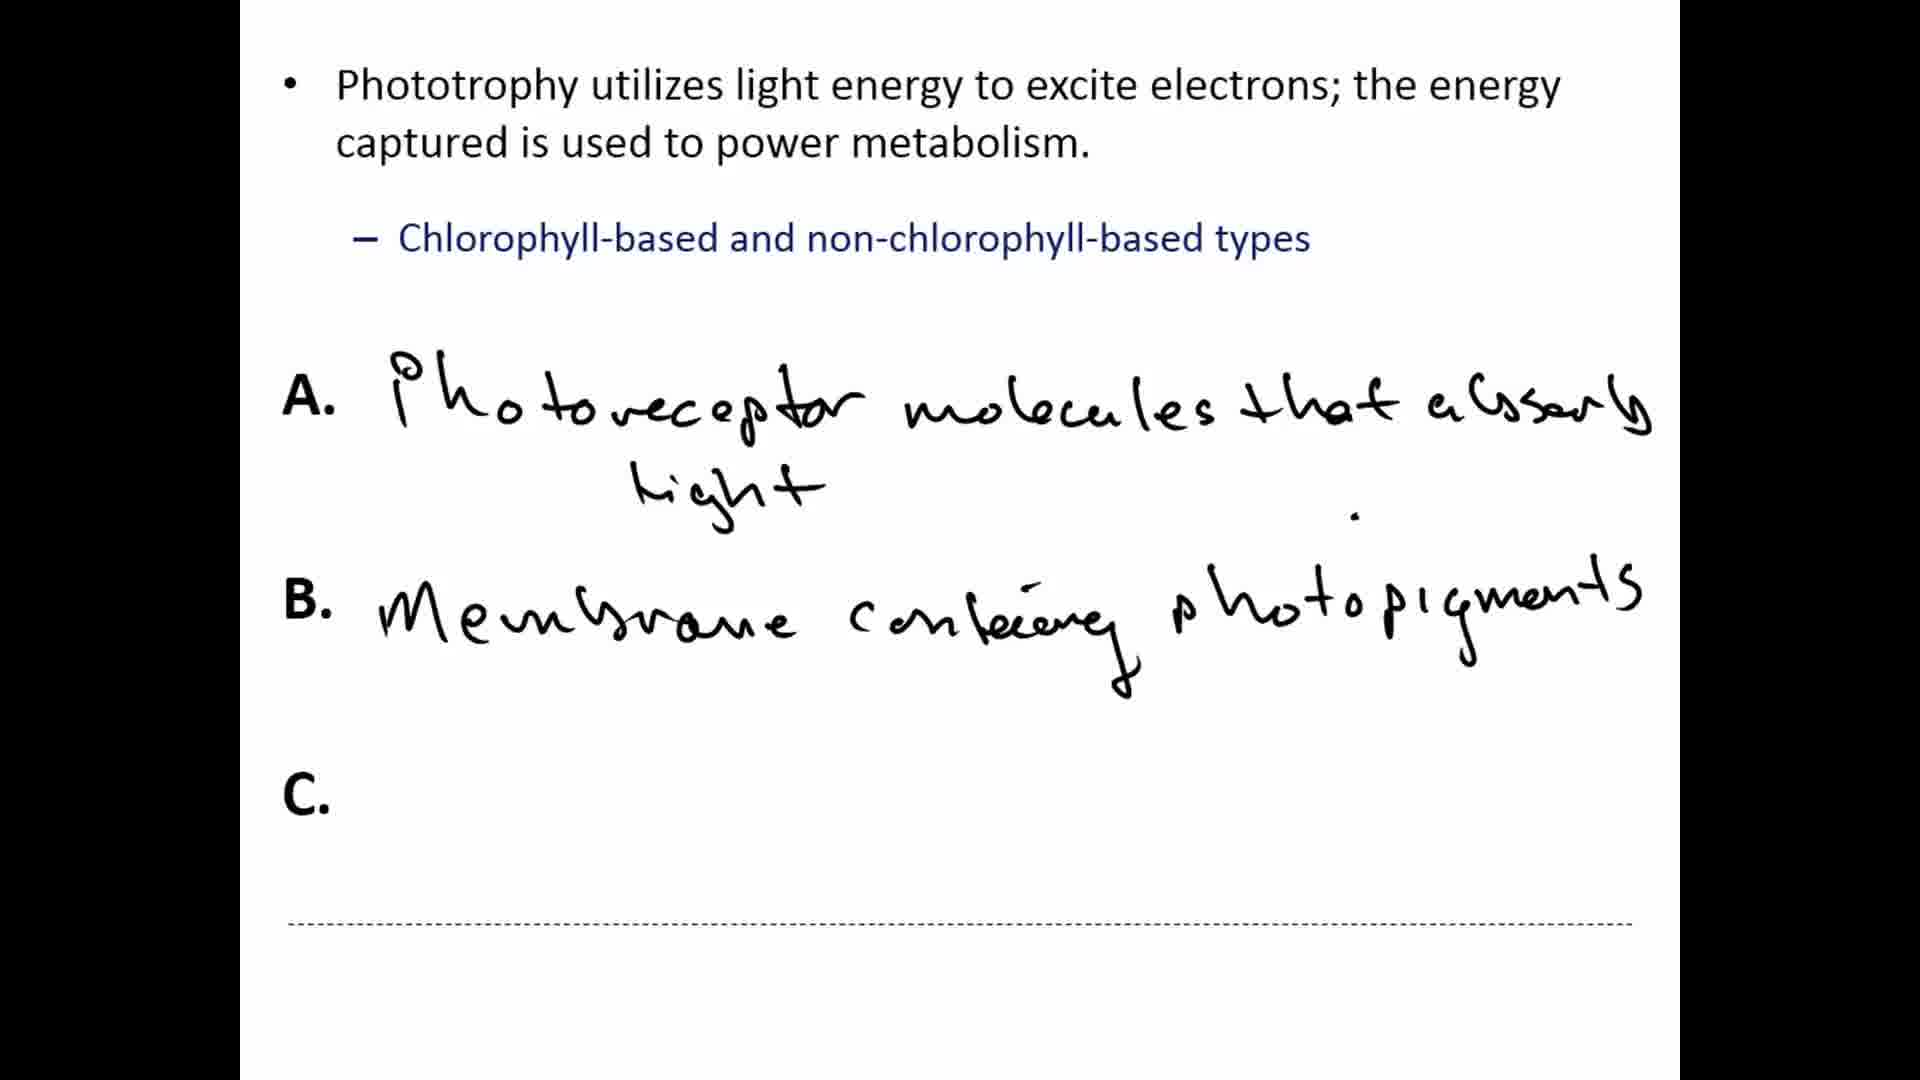 • Phototrophy utilizes light energy to excite electrons; the energy
captured is used to power metabolism.
– Chlorophyll-based and non-chlorophyll-based types
A. Photoreceptor molecules that absorb
light
B. Membrane containing photopigments
C.